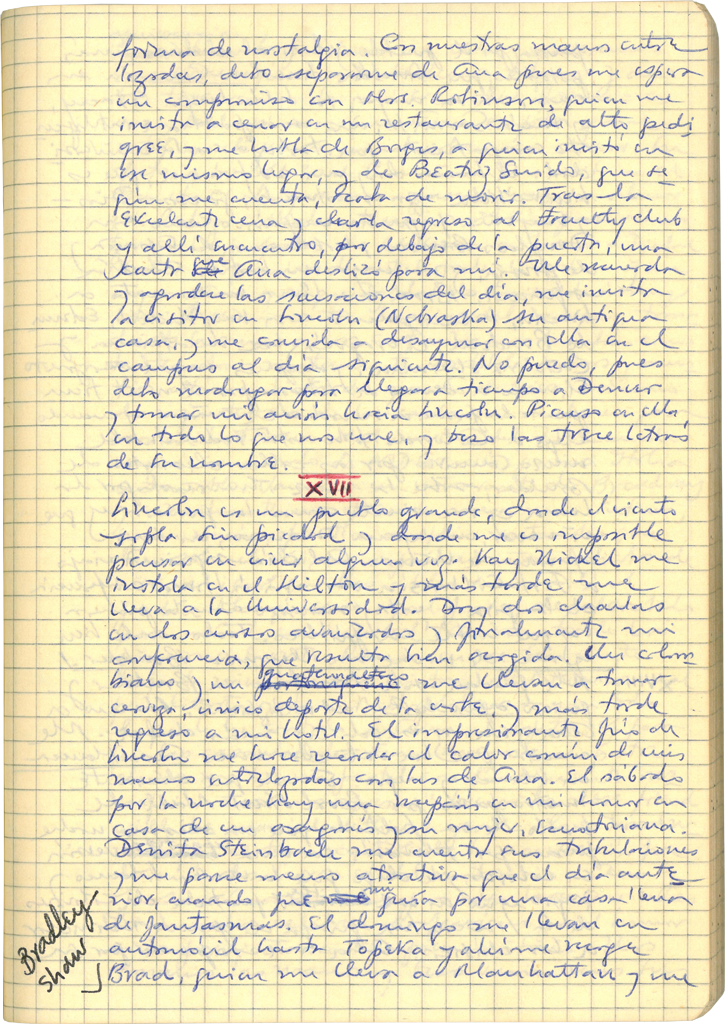 forma de nostalgia. Con nuestras manos entre
lazadas, debo separarme de Ana pues me espera
un compromiso con Mrs. Robinson, quien me
invita a cenar en un restaurante de alto pedi
gree, y me habla de Borges, a quien invitó en
ese mismo lugar, y de Beatriz Guido, que se-
gún me cuenta, acaba de morir. Tras la
excelente cena y charla regreso al Faculty club
y allí encuentro, por debajo de la puerta, una
carta que Ana deslizó para mí. Me recuerda
y agradece las sensaciones del día, me invita
a visitar en Lincoln (Nebraska) su antigua
casa, y me convida a desayunar con ella en el
campus al día siguiente. No puedo, pues
debo madrugar para llegar a tiempo a Denver
y tomar un avión hacia Lincoln. Pienso en ella
en todo lo que nos une, y beso las trece letras
de su nombre.
XVII
Lincoln es un pueblo grande, donde el viento
sopla sin piedad y donde me es imposible
pensar en vivir alguna vez. Kay Nickel me
instala en el Hilton y más tarde me
lleva a la Universidad. Doy dos charlas
en los cursos avanzados y finalmente mi
conferencia, que resulta bien acogida. Un colom-
biano y un guatemalteco me llevan a tomar
cerveza, único deporte de la corte, y más tarde
regreso a mi hotel. El impresionante frío de
Lincoln me hace recordar el calor común de mis
manos entrelazadas con las de Ana. El sábado
por la noche hay una recepción en mi honor en
casa de un aragonés y su mujer, ecuatoriana.
Denita Steinbach me cuenta sus tribulaciones
y me parece menos atractiva que el día ante
rior, cuando fue mi guía por una casa llena
de fantasmas. El domingo me llevan en
automóvil hasta Topeka y ahí me recoge
Brad, quien me lleva a Manhattan y me
Bradley
Shaw